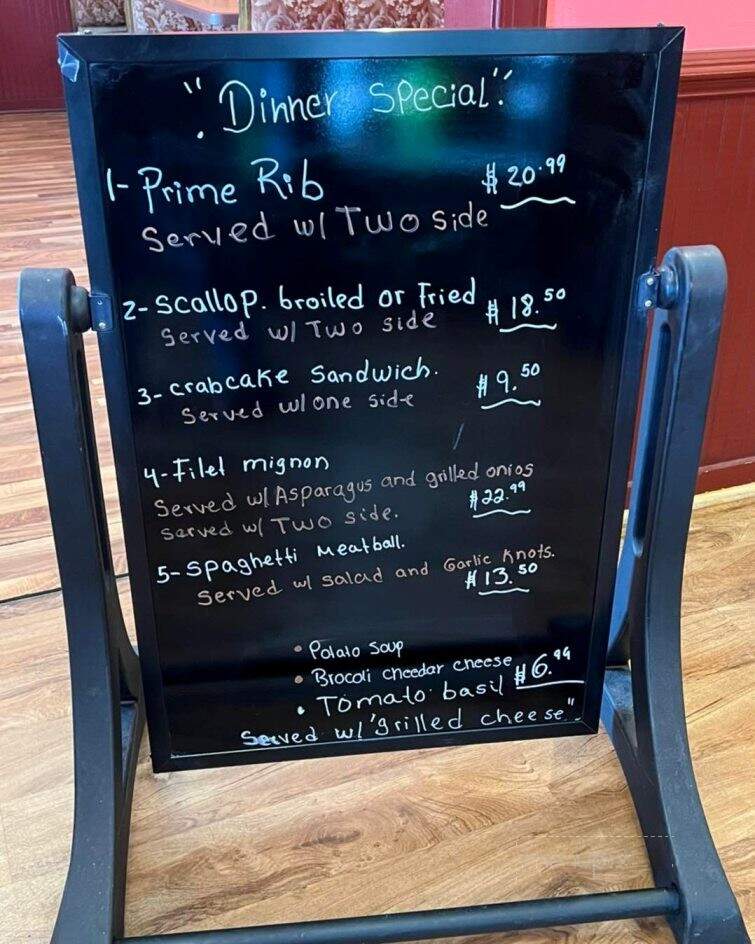 "Dinner Special".
1- Prime Rib $ 20.99
Served w/ Two side
2- Scallop. broiled or Fried $ 18.50
Served w/ Two side
3- crabcake Sandwich. $ 9.50
Served w/ one side
4- Filet mignon
Served w/ Asparagus and grilled onios
Served w/ Two side. $ 22.99
5- Spaghetti Meatball.
Served w/ salad and Garlic Knots.
$ 13.50
• Polalo Soup
• Brocoli cheedar cheese $ 6.99
• Tomalo basil
Served w/ "grilled cheese"